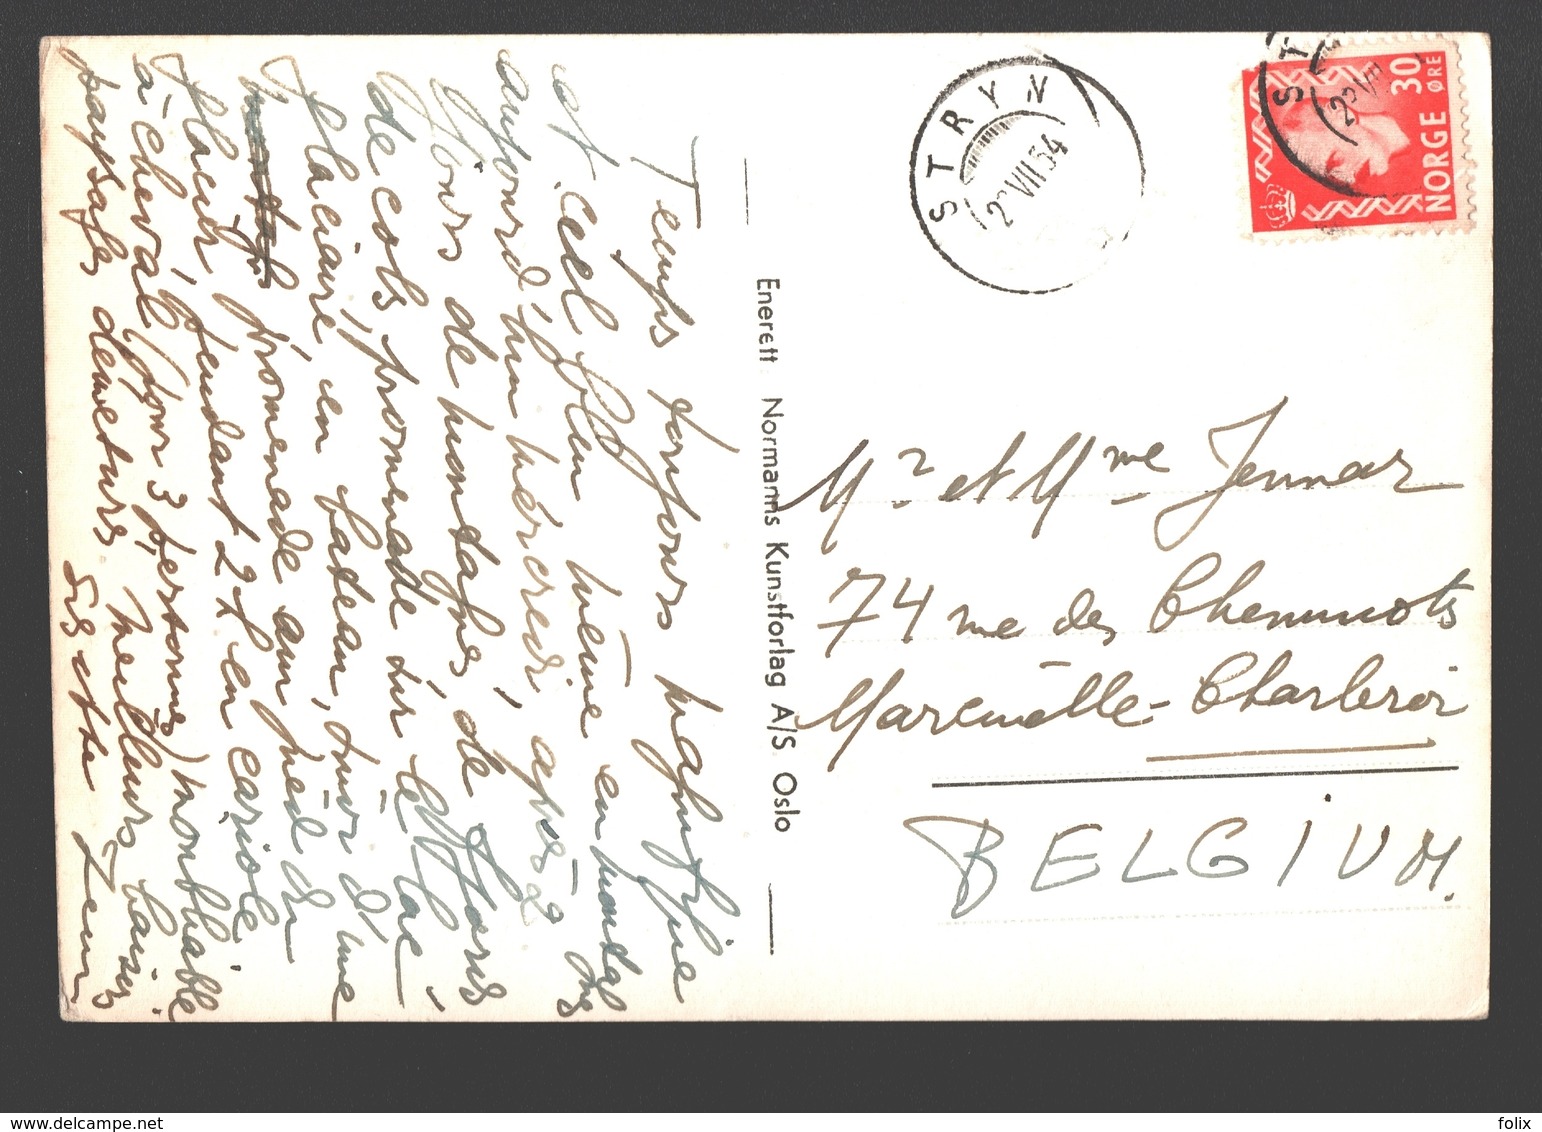 Temps toujours magnifique
et ciel bleu même en
aujourd'hui mercredi, après 2
jours de montagnes, de
de cols, promenade sur le lac
glaciaire en bateau, suivi d'une
promenade au pied du
glacier, pendant 2 h en cariole
à cheval (pour 3 personnes)
paysages Meilleurs baisers
STRYN
VII 54
ST
NORGE 30
ØRE
Enerett: Normanns Kunstforlag A/S. Oslo
Mr et Mme Jennar
74 rue des Cheminots
Marcinelle - Charleroi
BELGIUM.
folix